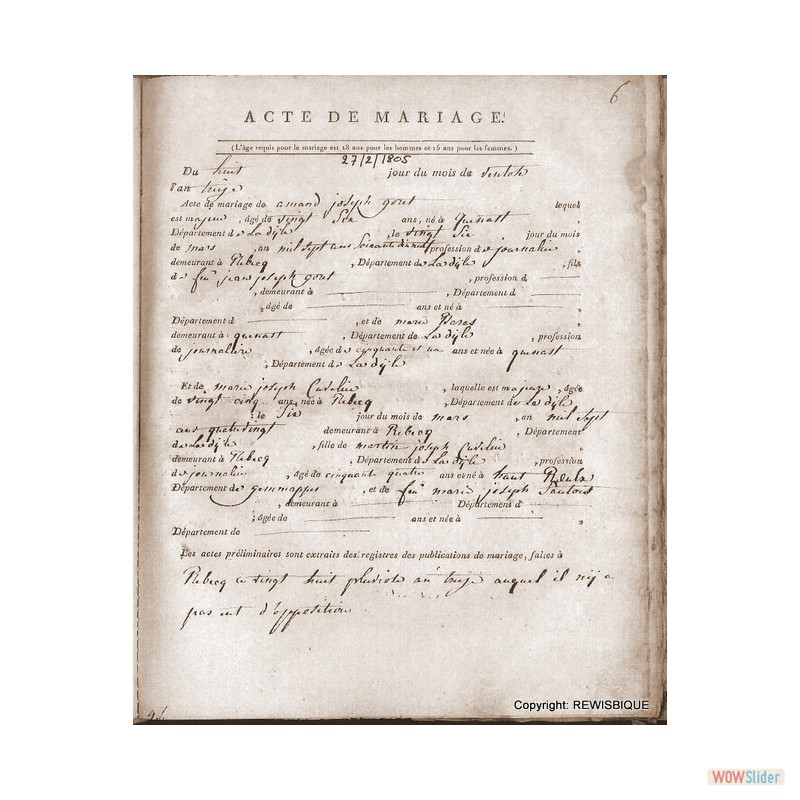 6
ACTE DE MARIAGE.
(L'âge requis pour le mariage est 18 ans pour les hommes et 15 ans pour les femmes.)
27/2/1805
Du huit jour du mois de ventose
l'an treize
Acte de mariage de amand joseph gout lequel
est majeur, âgé de vingt six ans, né à Quenast
Département de La dijle, le vingt six jour du mois
de mars, an mil sept ans Soixante dixneuf profession de journalier
demeurant à Rebecq, Département de La dijle, fils
de feu jean joseph gout, profession d
, demeurant à , Département d
, âgé de ans et né à
Département d , et de marie
demeurant à quenast, Département de La dijle, profession
de journaliere, âgée de cinquante et un ans et née à quenast
, Département de La dijle
Et de marie joseph Cuvelier, laquelle est majeure, âgée
de vingt cinq ans, née à Rebecq, Département de La dijle
, le Six jour du mois de mars, an mil sept
ans quatrevingt demeurant à Rebecq, Département
de La dijle, fille de martin joseph Cuvelier
demeurant à Rebecq, Département de La dijle, profession
de journalier, âgé de cinquante quatre ans et né à haut Rœulx
Département de gemmappes, et de feu marie joseph
, demeurant à Département d
, âgée de ans et née à
Département de
Les actes préliminaires sont extraits des registres des publications de mariage, faites à
Rebecq ce vingt huit pluviose an treize auquel il nij a
pas eut d'opposition
Copyright: REWISBIQUE
WOWSlider